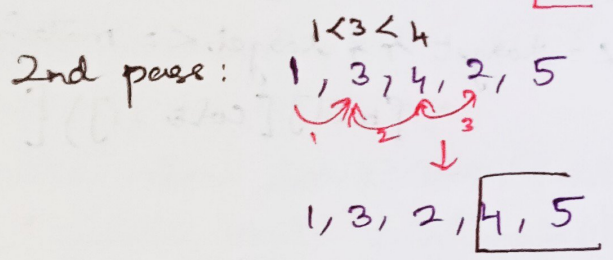 1<3<4
2nd pass: 1, 3, 4, 2, 5
1 2 3
1, 3, 2, 4, 5